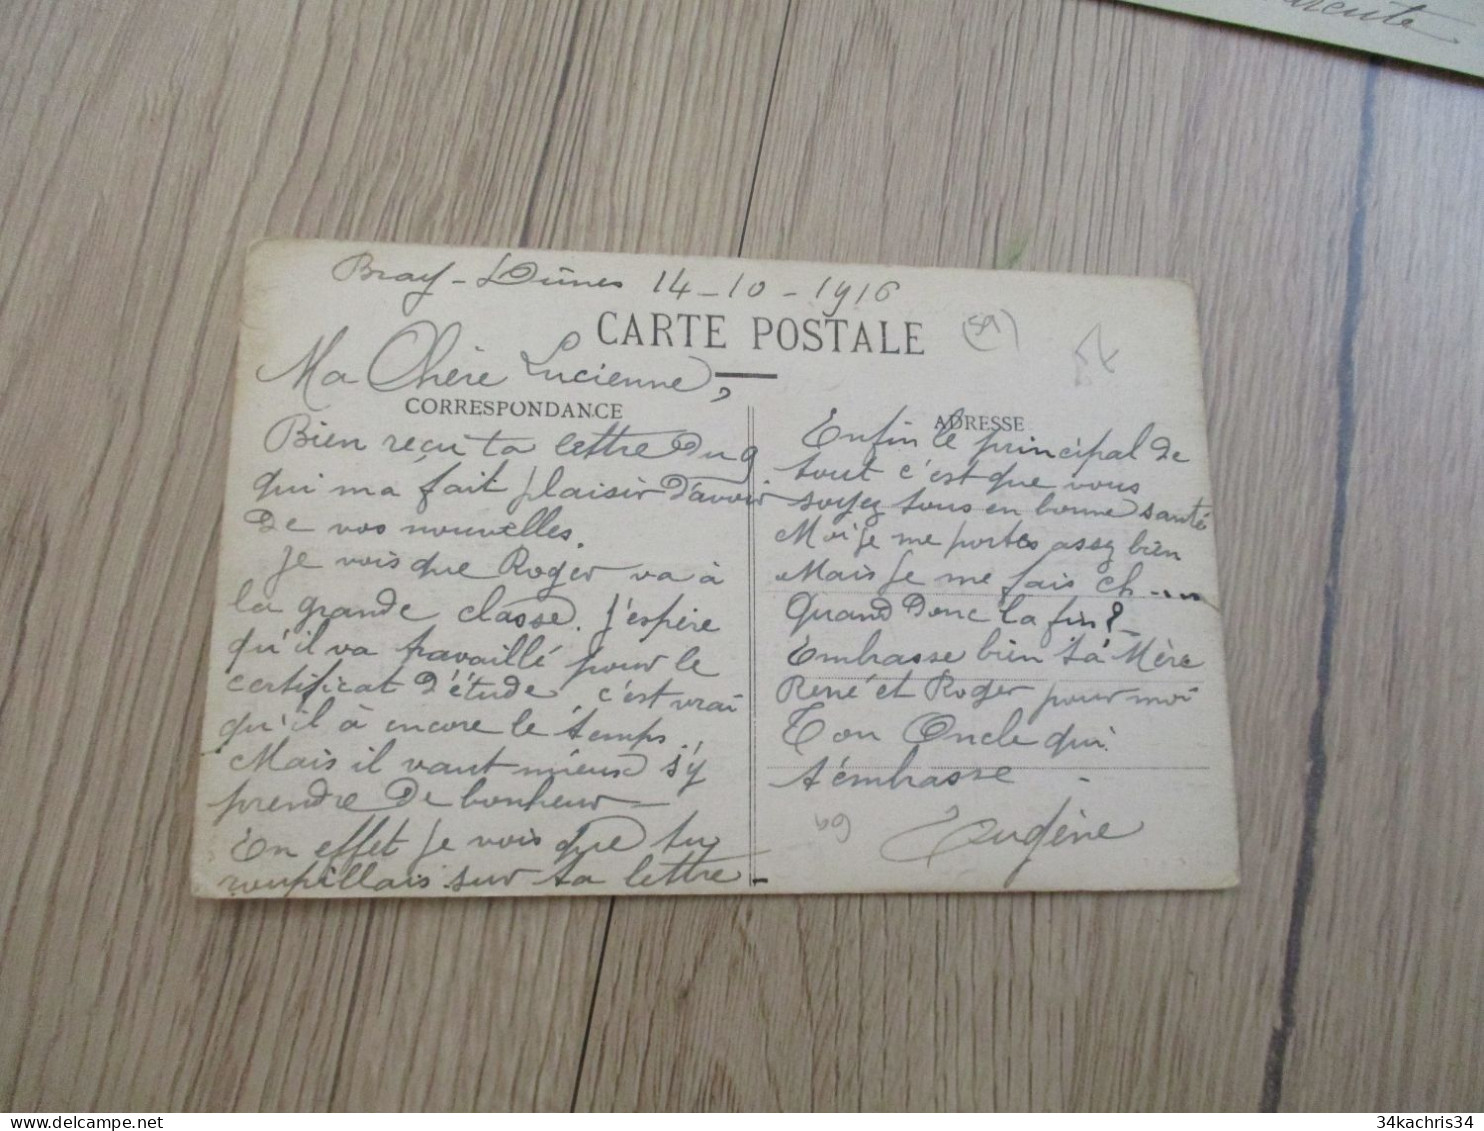 Bray-Dûnes 14-10-1916
CARTE POSTALE
(59)
Ma Chère Lucienne,
CORRESPONDANCE
Bien reçu ta lettre Du 9
qui ma fait plaisir D'avoir
De vos nouvelles.
Je vois que Roger va à
la grande classe. J'espère
qu'il va travaillé pour le
certificat D'étude, c'est vrai
qu'il à encore le temps.
Mais il vaut mieux s'y
prendre De bonheur
En effet je vois que tu
roupillais sur ta lettre
ADRESSE
Enfin le principal de
tout c'est que vous
soyez tous en bonne santé
Moi je me portes assez bien
Mais Je me fais ch....
Quand Donc la fin?
Embrasse bien ta Mère
René et Roger pour moi
Ton Oncle qui
t'embrasse
69
Eugène
34kachris34